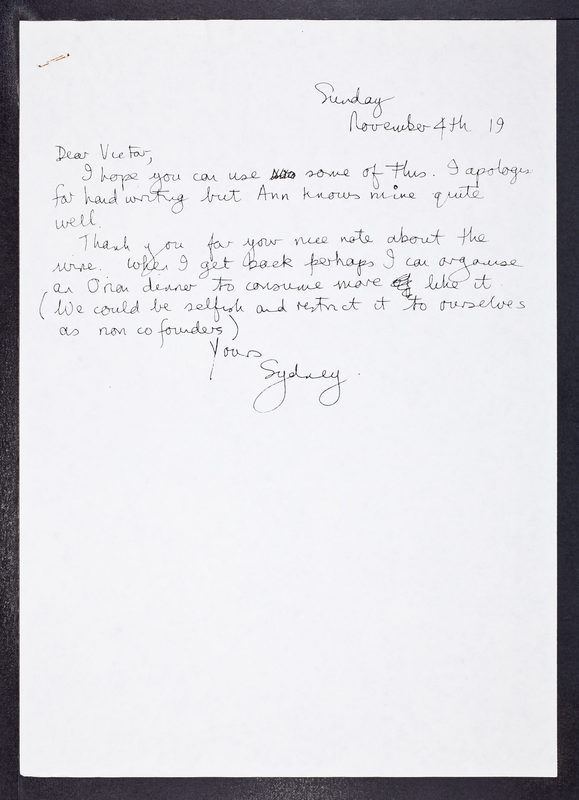 Sunday
November 4th 19
Dear Victor,
I hope you can use some of this. I apologise
for handwriting but Ann knows mine quite
well.
Thank you for your nice note about the
wine. When I get back perhaps I can organise
an Orion dinner to consume more like it.
(We could be selfish and restrict it to ourselves
as non cofounders)
Yours
Sydney.